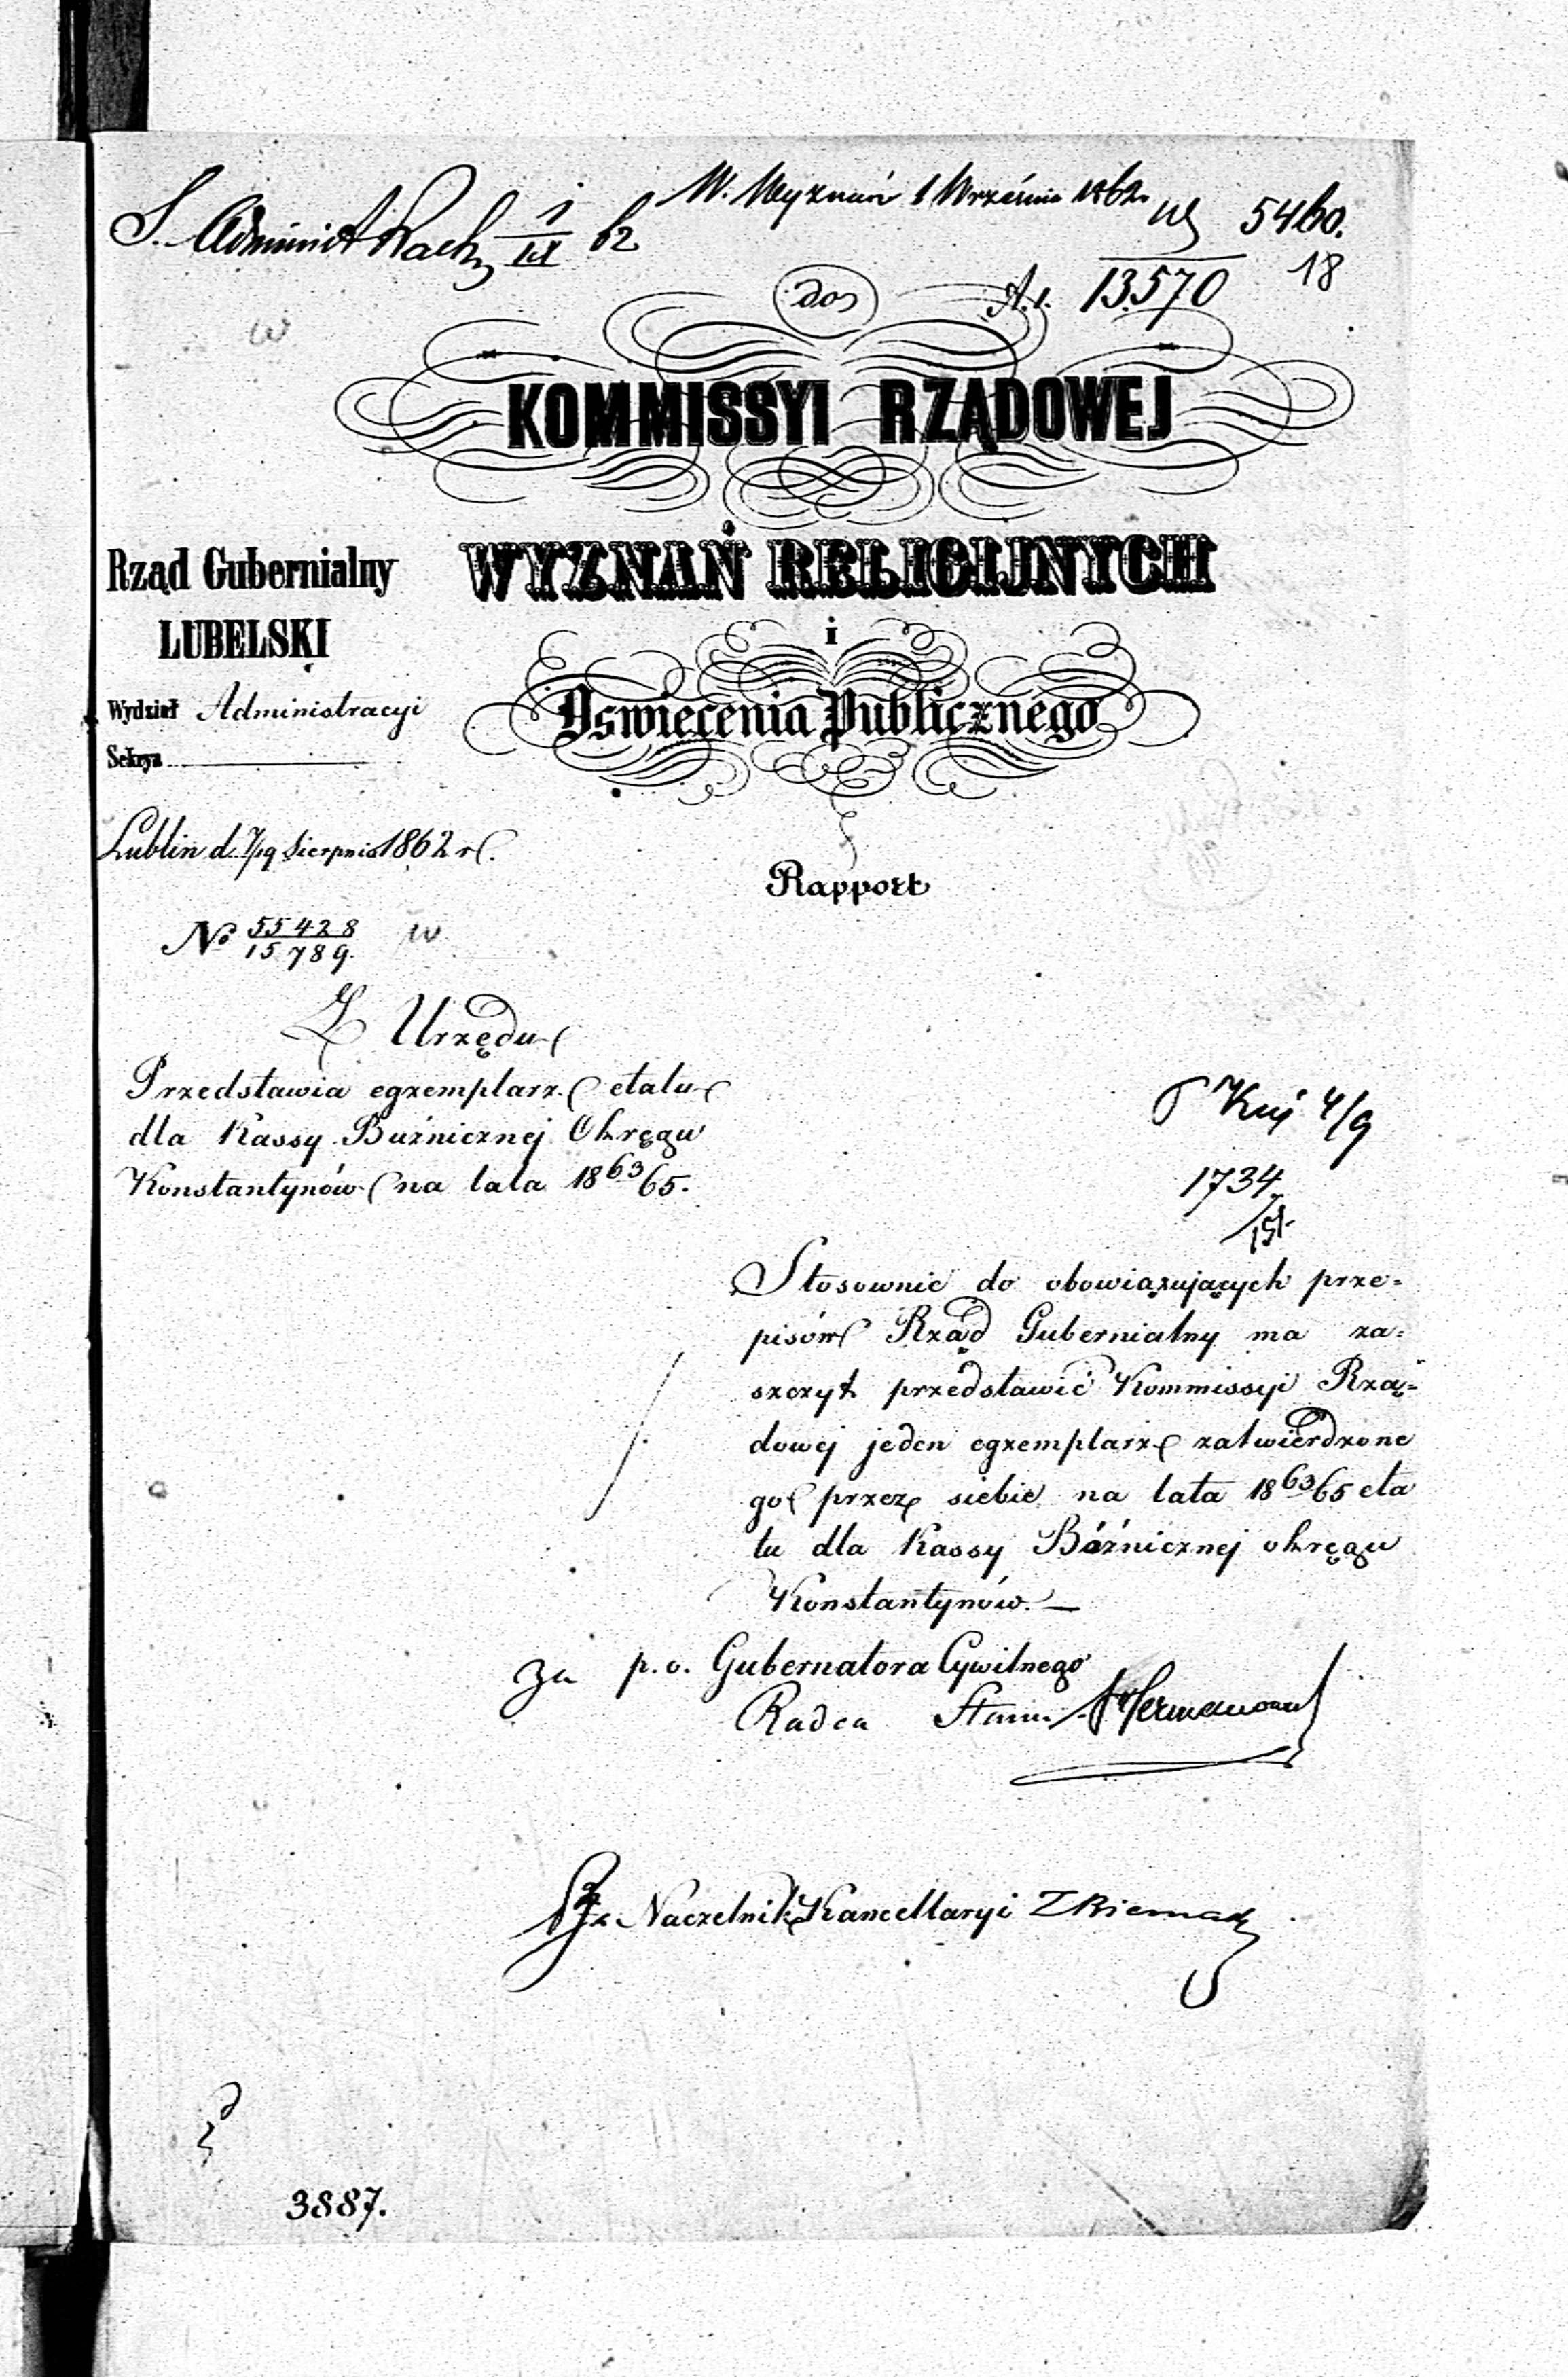 W. Wyznań 1 Września 1862
5460.
S. Administ Rach I/IX 62
13.570
18
do
KOMMISSYI RZĄDOWEJ
WYZNAŃ RELIGIJNYCH
i
Oświecenia Publicznego
Rząd Gubernialny
LUBELSKI
Wydział Administracyi
Sekcya
Lublin d. 7/19 Sierpnia 1862 r.
No 55428/15789.
Rapport
Z Urzędu
Przedstawia egzemplarz etatu
dla Kassy Bużnicznej Okręgu
Konstantynów na lata 1863/65.
4/9
1734
Stosownie do obowiązujących prze-
pisów Rząd Gubernialny ma za-
szczyt przedstawić Kommissyi Rzą-
dowej jeden egzemplarz zatwierdzone
go przez siebie na lata 1863/65 eta
tu dla Kassy Bóźnicznej okręgu
Konstantynów. —
za p.o. Gubernatora Cywilnego
Radca Stanu
Naczelnik Kancellaryi
3887.